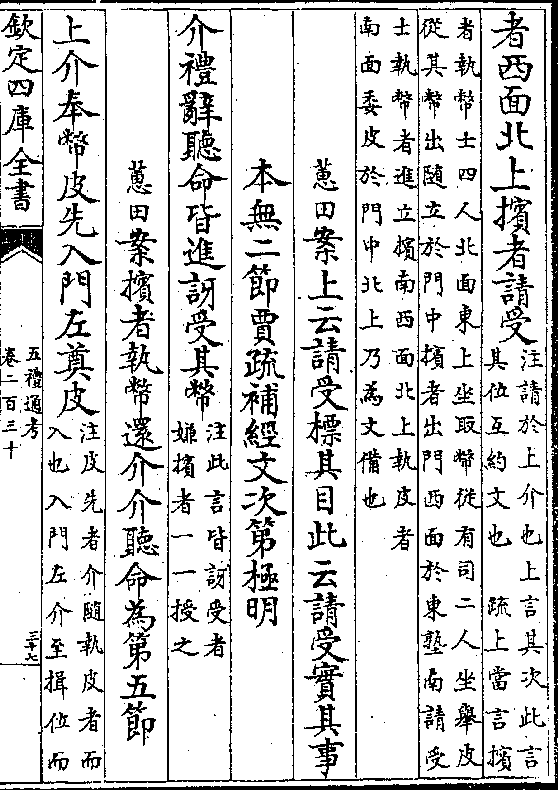 者西面北上擯者請受注請於上介也上言其次此言
其位互約文也　疏上當言擯
者執幣士四人北面東上坐取幣從有司二人坐舉皮
從其幣出隨立於門中擯者出門西面於東塾南請受
士執幣者進立擯南西面北上執皮者
南面委皮於門中北上乃為文備也
蕙田案上云請受標其目此云請受實其事
本無二節賈疏補經文次第極明
介禮辭聽命皆進訝受其幣注此言皆訝受者
嫌擯者一一授之
蕙田案擯者執幣還介介聽命為第五節
上介奉幣皮先入門左奠皮注皮先者介隨執皮者而
入也入門左介至揖位而
欽定四庫全書
五禮通考
卷二百三十
三十七